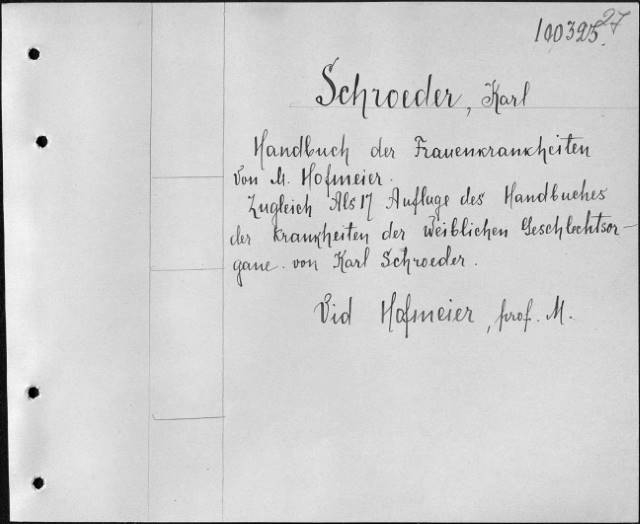 100325.
27
Schroeder, Karl
Handbuch der Frauenkrankheiten
von M. Hofmeier.
Zugleich Als 17 Aufluge des Handbuches
der Krankheiten der Weiblichen Geschlechtsor-
gane. von Karl Schroeder.
Vid Hofmeier, prof. M.